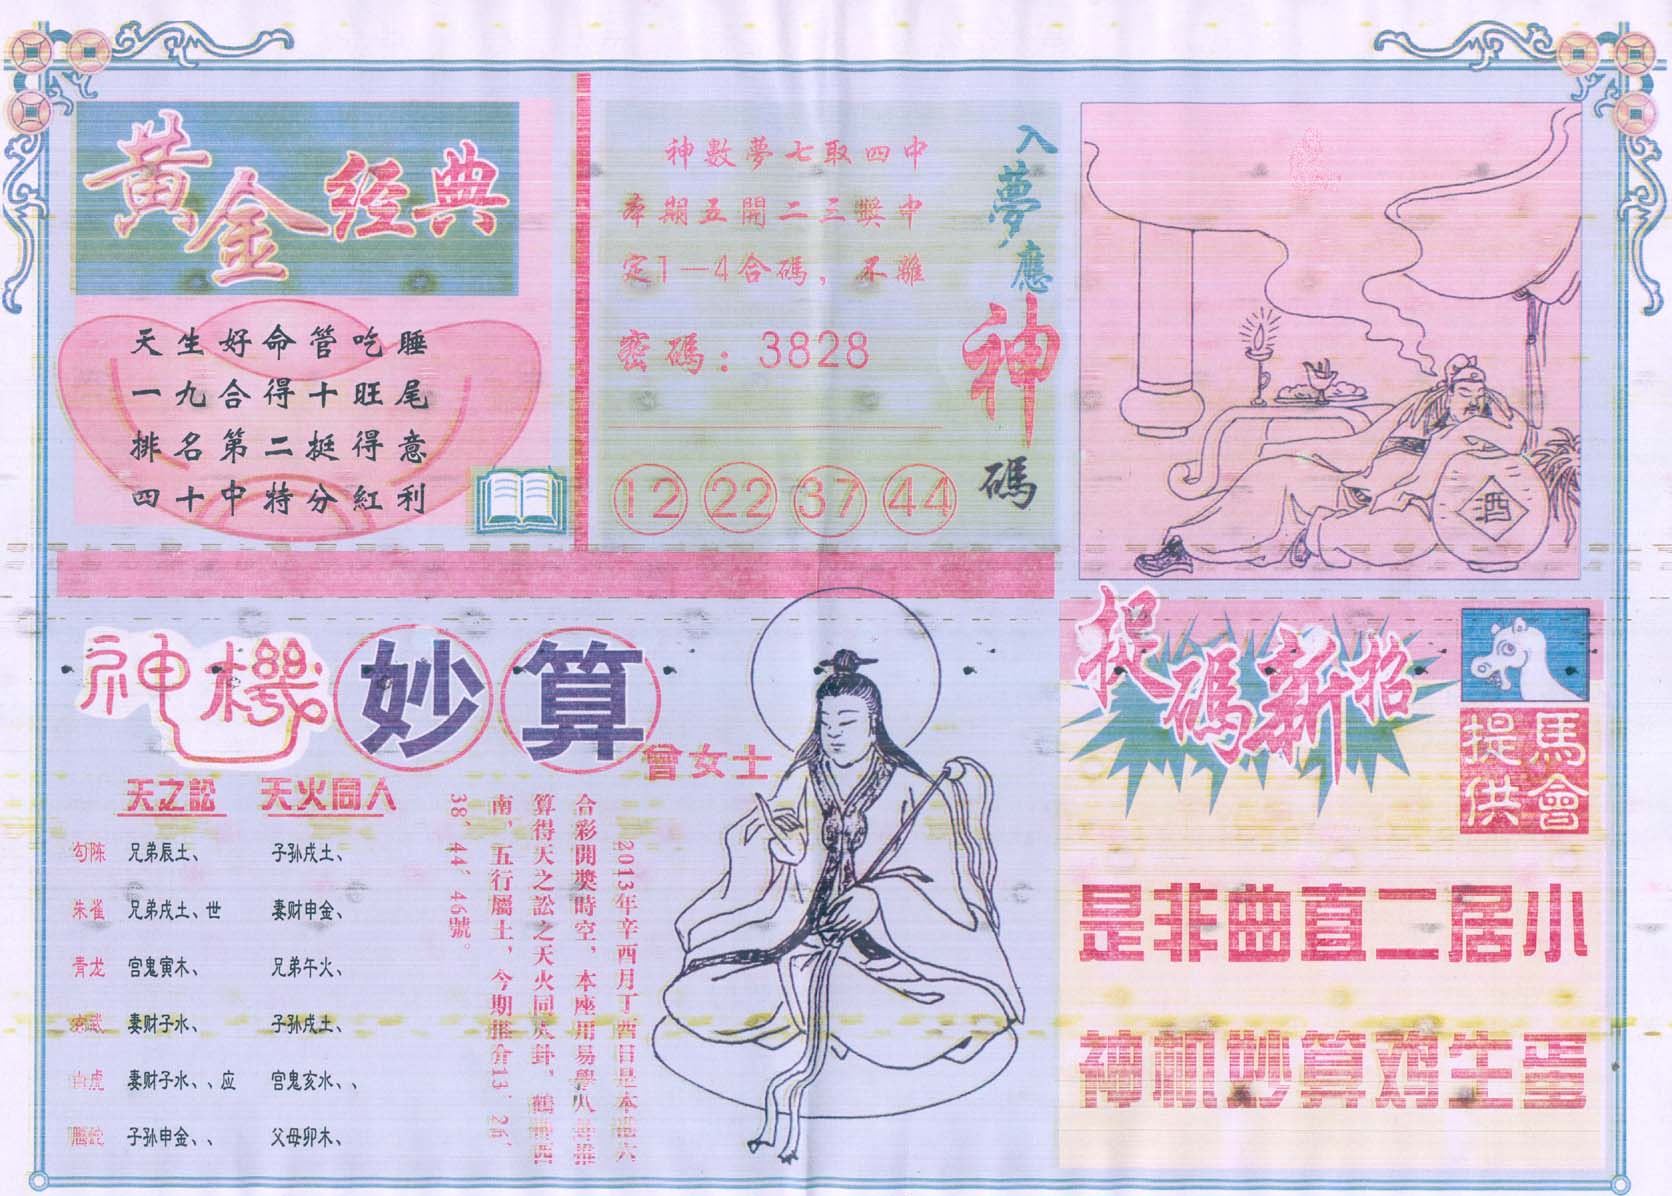 黄金经典
天生好命管吃睡
一九合得十旺尾
排名第二挺得意
四十中特分紅利
神數夢七取四中
本期五開二三獎中
定1—4合碼，不離
密碼：3828
12 22 37 44
入夢應神碼
酒
神機妙算
曾女士
天之訟 天火同人
勾陈 兄弟辰土、 子孙戌土、
朱雀 兄弟戌土、世 妻财申金、
青龙 宫鬼寅木、 兄弟午火、
玄武 妻财子水、 子孙戌土、
白虎 妻财子水、、应 宫鬼亥水、、
螣蛇 子孙申金、、 父母卯木、
2013年辛酉月丁酉日是本港六
合彩開獎時空，本座用易學八卦推
算得天之訟之天火同人卦，鶴神西
南，五行屬土，今期推介13、26、
38、44、46號。
捉碼新招
馬會提供
是非曲直二居小
神机妙算鸡生蛋